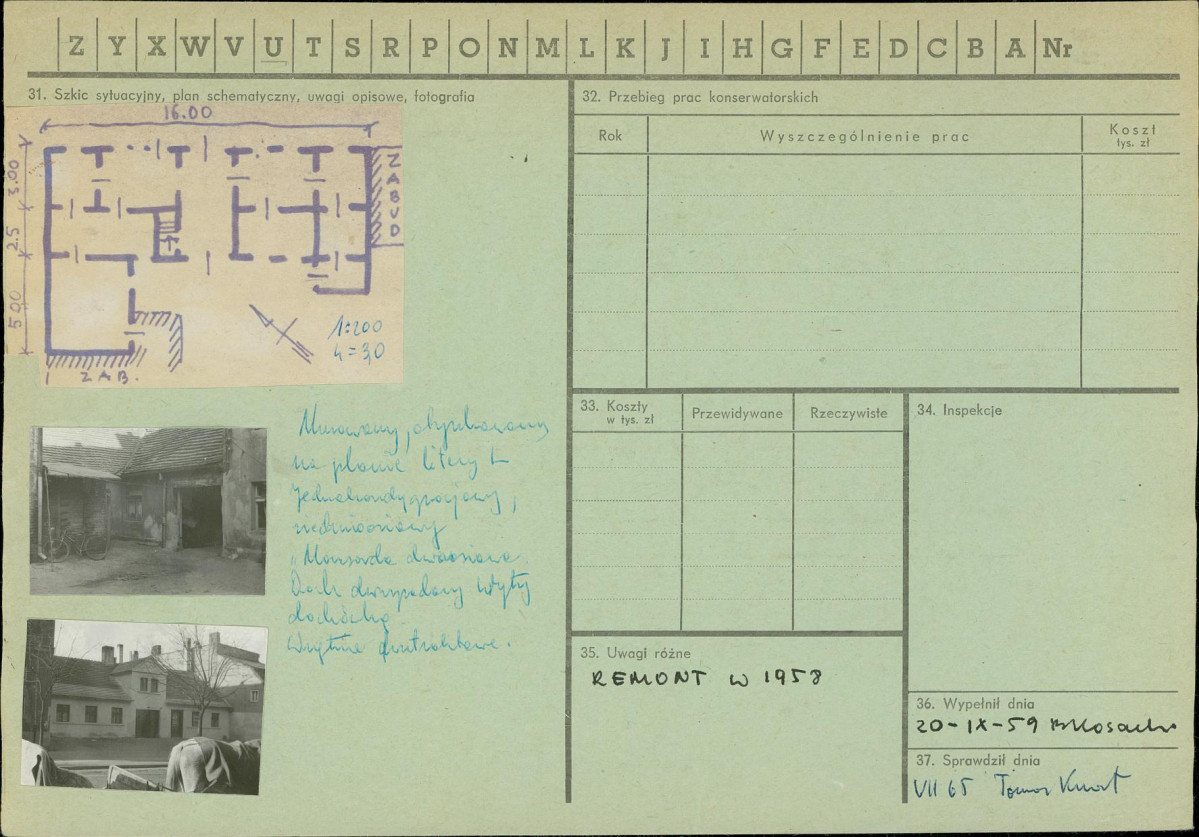 Z Y X W V U T S R P O N M L K J I H G F E D C B A Nr
31. Szkic sytuacyjny, plan schematyczny, uwagi opisowe, fotografia
16.00
3.00
2.5
5.00
ZABUD
1:200
h = 3,0
ZAB.
Murowany, otynkowany
na planie litery L
Jednokondygnacjowy,
siedmioosiowy
Mansarda dwuosiowa.
Dach dwuspadowy kryty
dachówką
Wnętrze
32. Przebieg prac konserwatorskich
Rok
Wyszczególnienie prac
Koszt
tys. zł
33. Koszty
w tys. zł
Przewidywane
Rzeczywiste
34. Inspekcje
35. Uwagi różne
REMONT w 1958
36. Wypełnił dnia
20-IX-59
37. Sprawdził dnia
VII 65